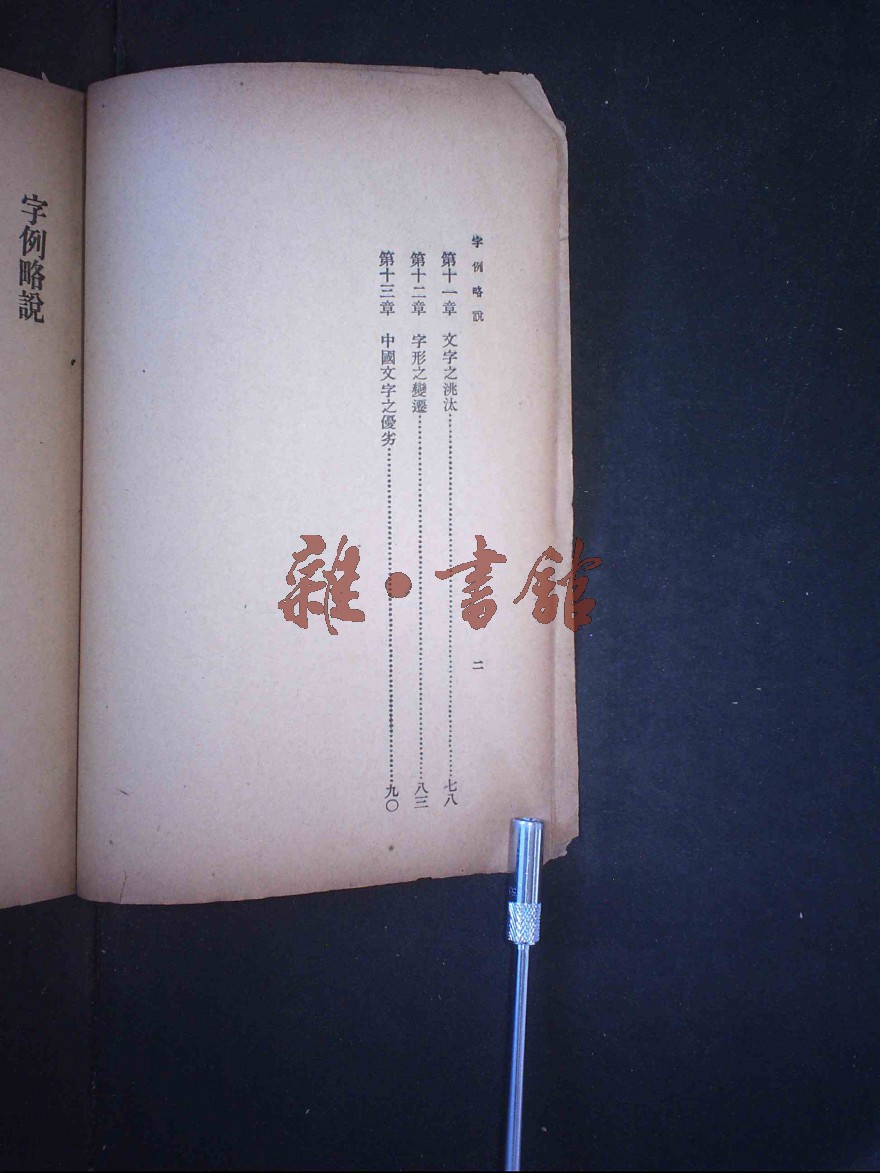 字例略說
二
第十一章　文字之洮汰……七八
第十二章　字形之變遷……八三
第十三章　中國文字之優劣……九〇
字例略說
雜·書館